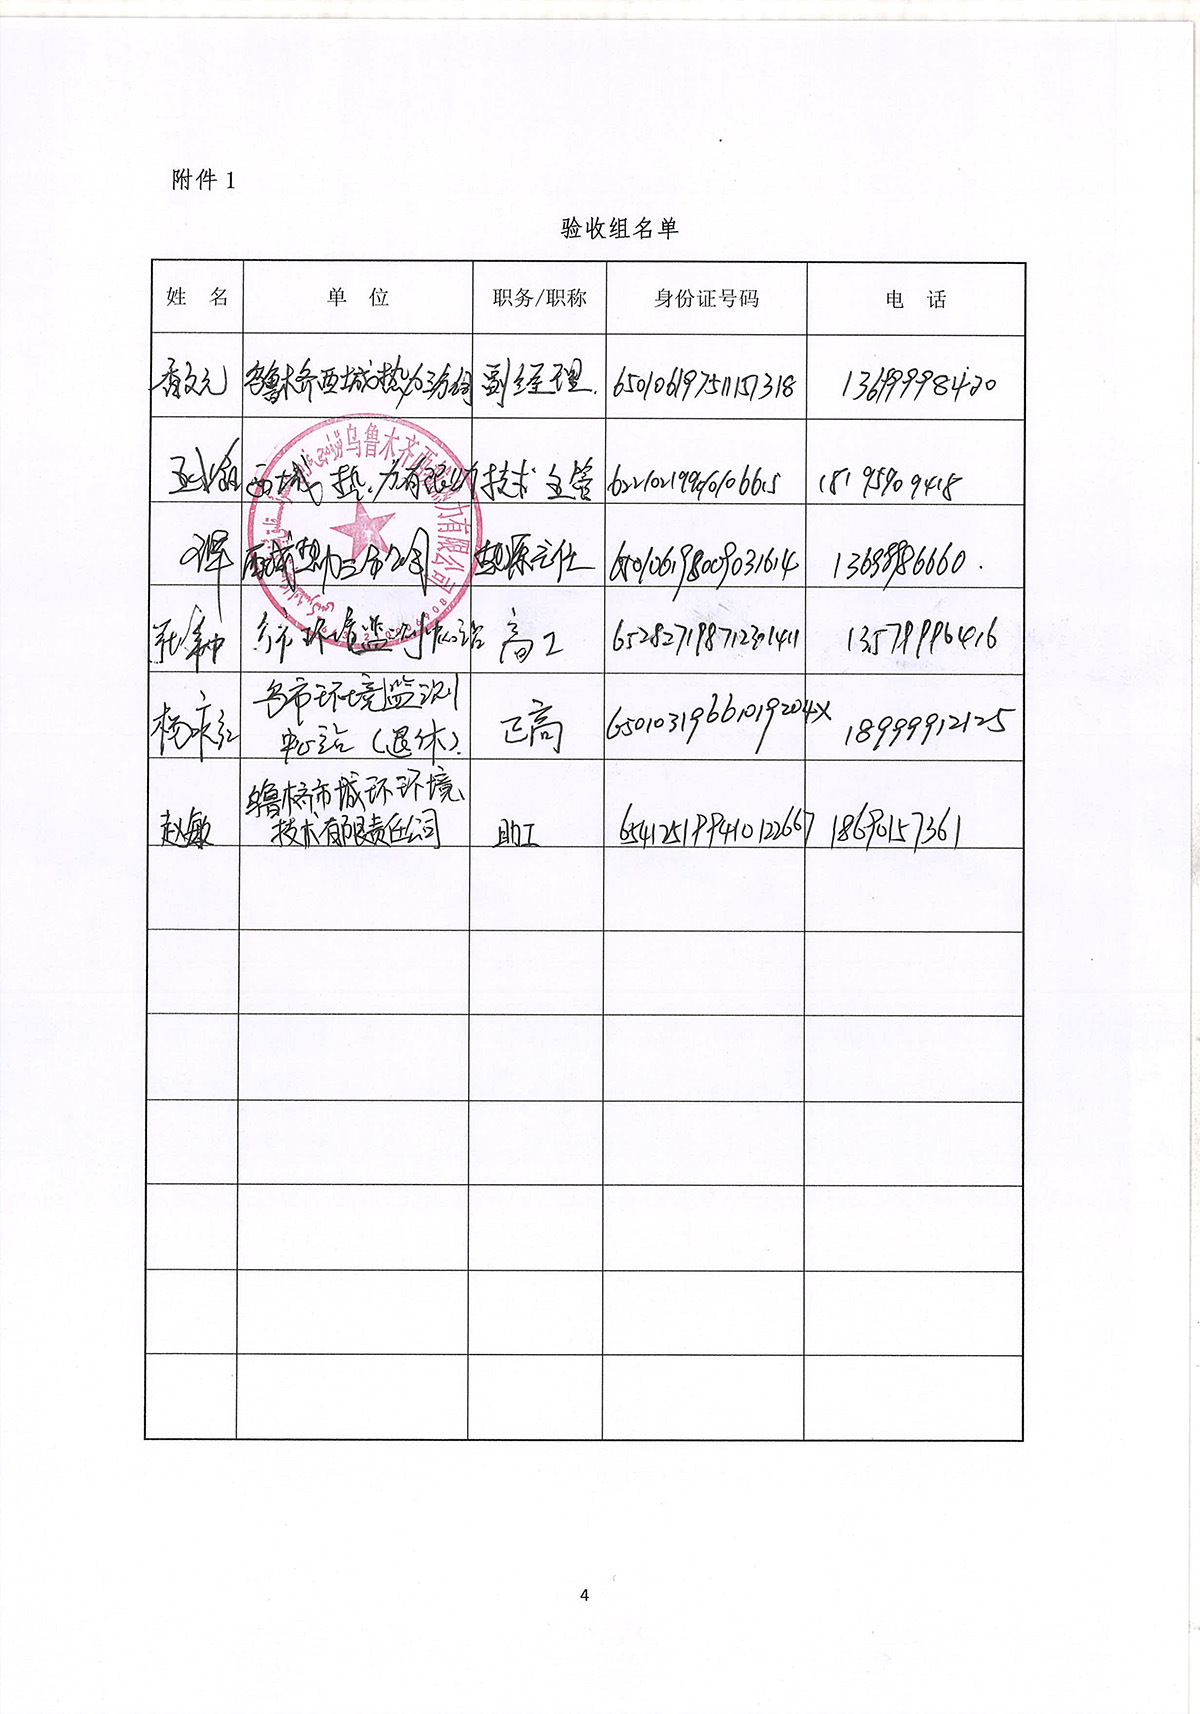 附件 1
验收组名单
姓 名 单 位 职务/职称 身份证号码 电 话
乌鲁木齐西城热力 副经理 650106197511157318 13699998420
西城热力有限公司 技术主管 18195909418
西城热力 热源主任 650106198009031614
环境监测中心站 高工 13579996416
杨庆红 乌市环境监测 正高 65010319661019204X 18999912125
中心站（退休）
赵敏 乌鲁木齐市城环环境 助工 654125199410122667 18690157361
技术有限责任公司
乌鲁木齐西城热力有限公司
4